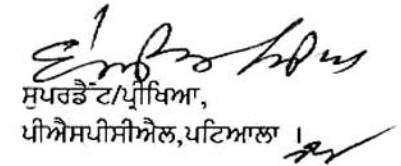 ਸੁਪਰਡੈਂਟ/ਪ੍ਰੀਖਿਆ,
ਪੀਐਸਪੀਸੀਐਲ,ਪਟਿਆਲਾ ।